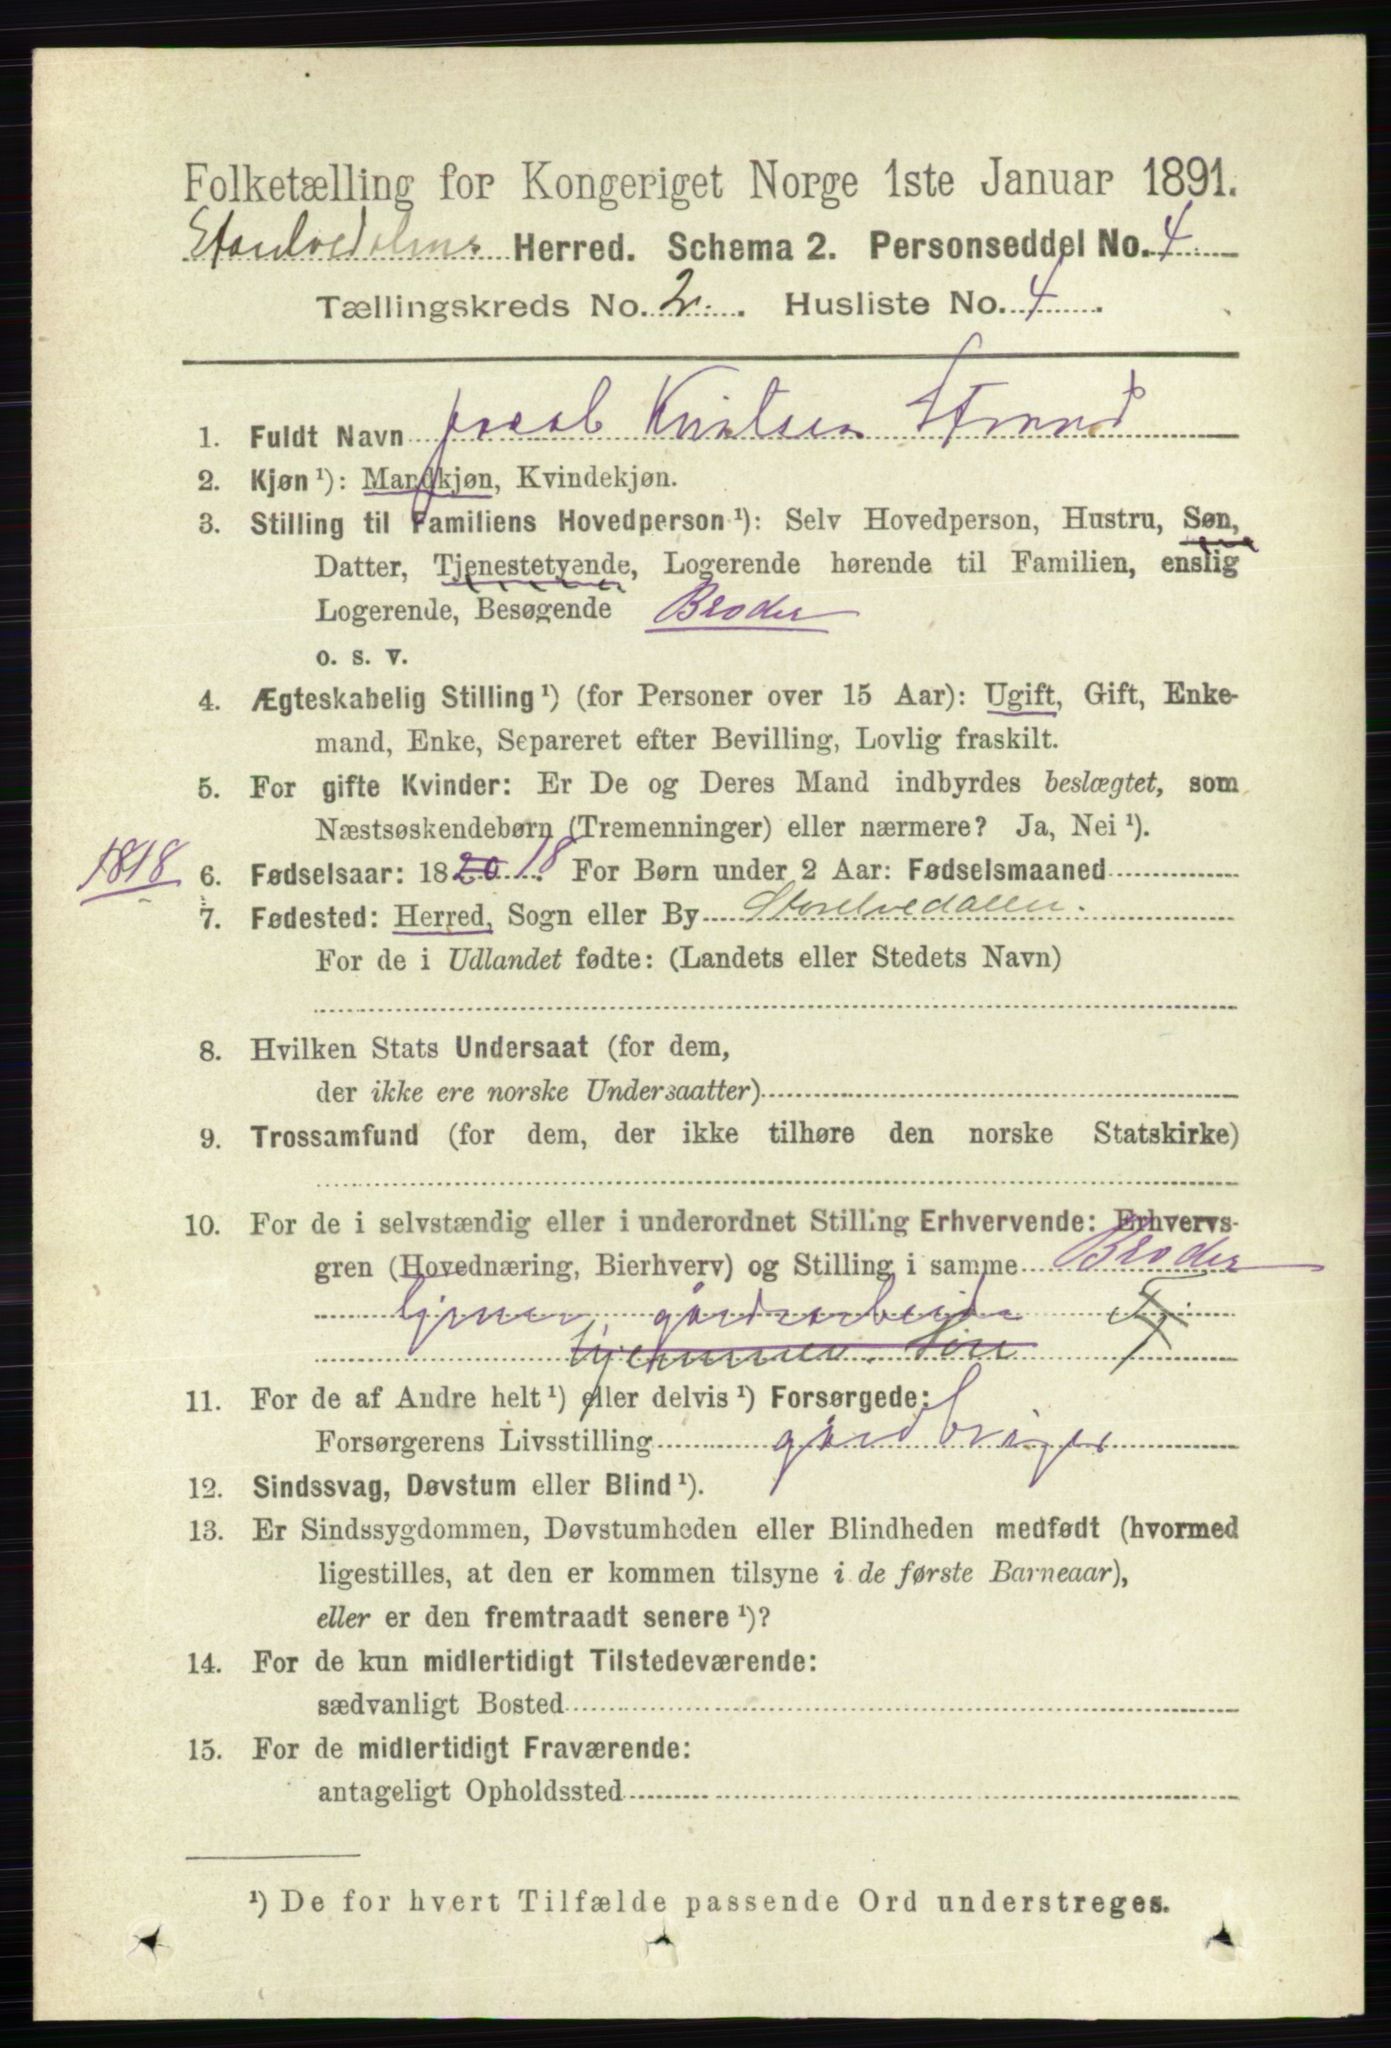 Folketælling for Kongeriget Norge 1ste Januar 1891.
Storelvedalens Herred. Schema 2. Personseddel No. 4.
Tællingskreds No. 2. Husliste No. 4.
1. Fuldt Navn Jacob Knutsen Strand
2. Kjøn ¹): Mandkjøn, Kvindekjøn.
3. Stilling til Familiens Hovedperson ¹): Selv Hovedperson, Hustru, Søn,
Datter, Tjenestetyende, Logerende hørende til Familien, enslig
Logerende, Besøgende Broder
o. s. v.
4. Ægteskabelig Stilling ¹) (for Personer over 15 Aar): Ugift, Gift, Enke-
mand, Enke, Separeret efter Bevilling, Lovlig fraskilt.
5. For gifte Kvinder: Er De og Deres Mand indbyrdes beslægtet, som
Næstsøskendebørn (Tremenninger) eller nærmere? Ja, Nei ¹).
1818 6. Fødselsaar: 1820 18. For Børn under 2 Aar: Fødselsmaaned
7. Fødested: Herred, Sogn eller By Storelvedalen.
For de i Udlandet fødte: (Landets eller Stedets Navn)
8. Hvilken Stats Undersaat (for dem,
der ikke ere norske Undersaatter)
9. Trossamfund (for dem, der ikke tilhøre den norske Statskirke)
10. For de i selvstændig eller i underordnet Stilling Erhvervende: Erhvervs-
gren (Hovednæring, Bierhverv) og Stilling i samme Broder
gårdsarbeide
11. For de af Andre helt ¹) eller delvis ¹) Forsørgede:
Forsørgerens Livsstilling gårdbruger
12. Sindssvag, Døvstum eller Blind ¹).
13. Er Sindssygdommen, Døvstumheden eller Blindheden medfødt (hvormed
ligestilles, at den er kommen tilsyne i de første Barneaar),
eller er den fremtraadt senere ¹)?
14. For de kun midlertidigt Tilstedeværende:
sædvanligt Bosted
15. For de midlertidigt Fraværende:
antageligt Opholdssted
¹) De for hvert Tilfælde passende Ord understreges.